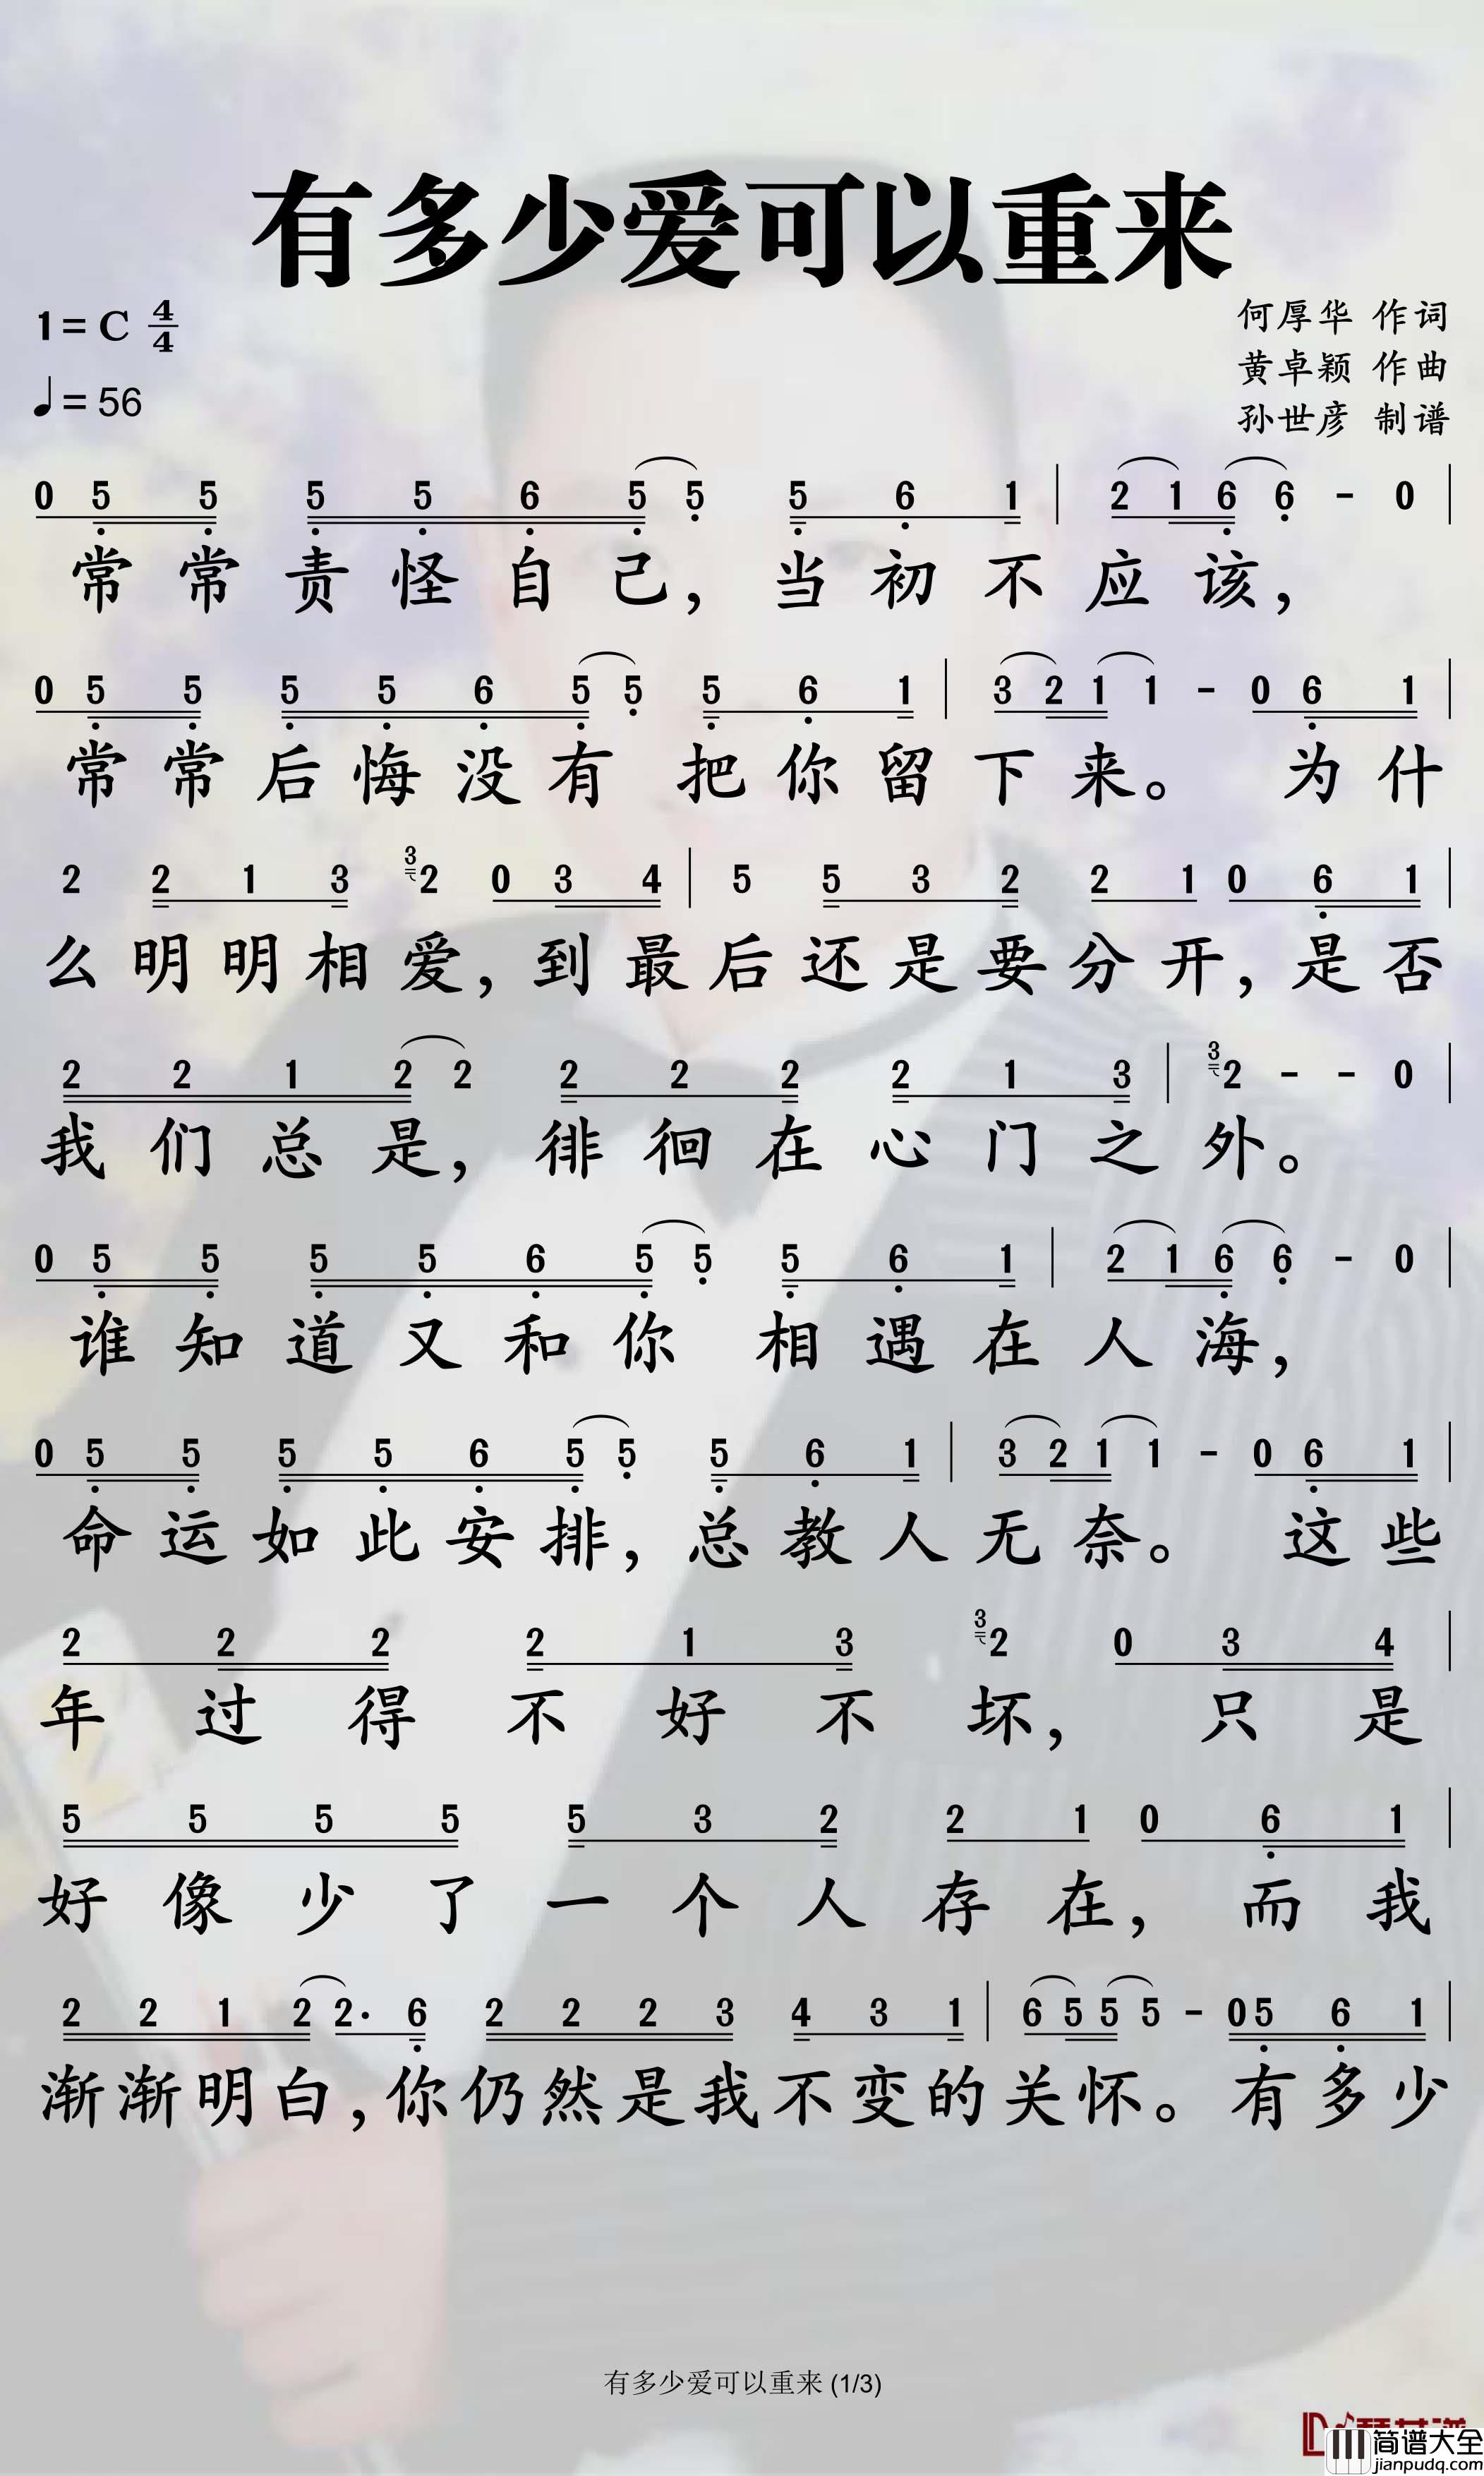 有多少爱可以重来
1=C 4/4
何厚华 作词
♩=56
黄卓颖 作曲
孙世彦 制谱
0 5 5 5 5 6 5 5 5 6 1 | 2 1 6 6 - 0 |
常常责怪自己，当初不应该，
0 5 5 5 5 6 5 5 5 6 1 | 3 2 1 1 - 0 6 1 |
常常后悔没有 把你留下来。 为什
2 2 1 3 3 2 0 3 4 | 5 5 3 2 2 1 0 6 1 |
么明明相爱，到最后还是要分开，是否
2 2 1 2 2 2 2 2 2 1 3 | 3 2 - - 0 |
我们总是，徘徊在心门之外。
0 5 5 5 5 6 5 5 5 6 1 | 2 1 6 6 - 0 |
谁知道又和你 相遇在人海，
0 5 5 5 5 6 5 5 5 6 1 | 3 2 1 1 - 0 6 1 |
命运如此安排，总教人无奈。 这些
2 2 2 2 1 3 3 2 0 3 4 |
年过得不好不坏，只是
5 5 5 5 5 3 2 2 1 0 6 1 |
好像少了一个人存在，而我
2 2 1 2 2· 6 2 2 2 3 4 3 1 | 6 5 5 5 - 0 5 6 1 |
渐渐明白，你仍然是我不变的关怀。有多少
有多少爱可以重来 (1/3)
简谱大全
jianpudq.com